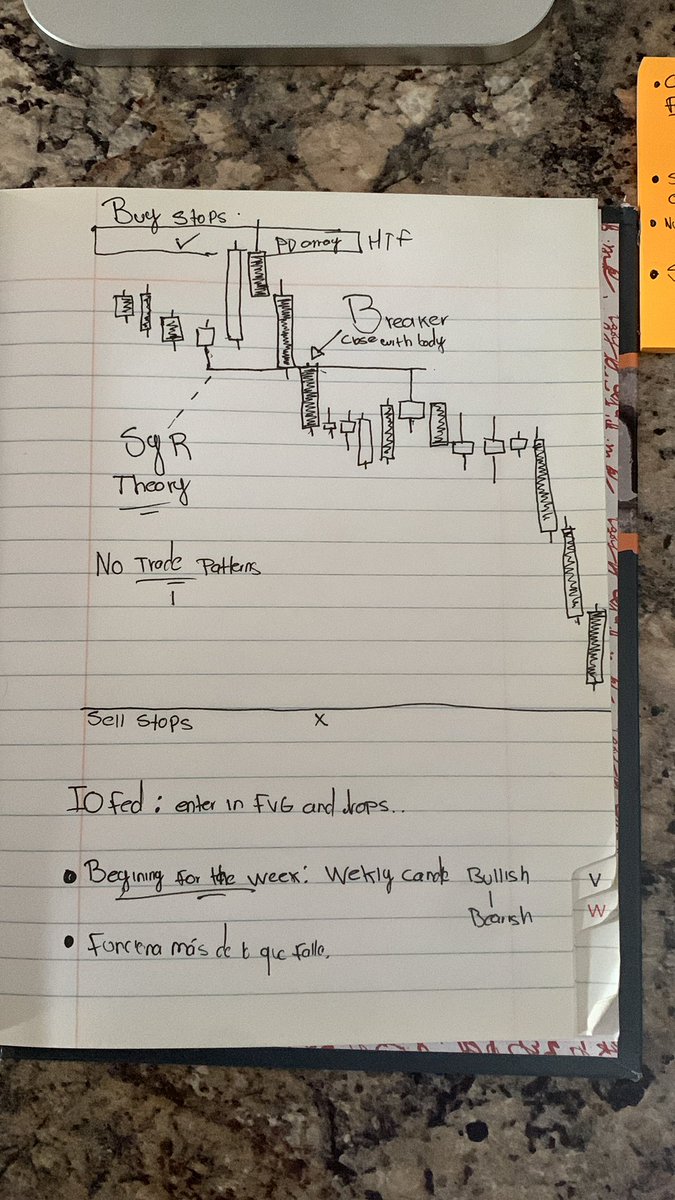 Buy stops.
PD array HTF
Breaker
close with body
SyR
Theory
No Trade Patterns
Sell stops X
IOfed : enter in FVG and drops..
• Begining for the week: Wekly candl Bullish
Bearish
• Funciona más de lo que falla.
V
W